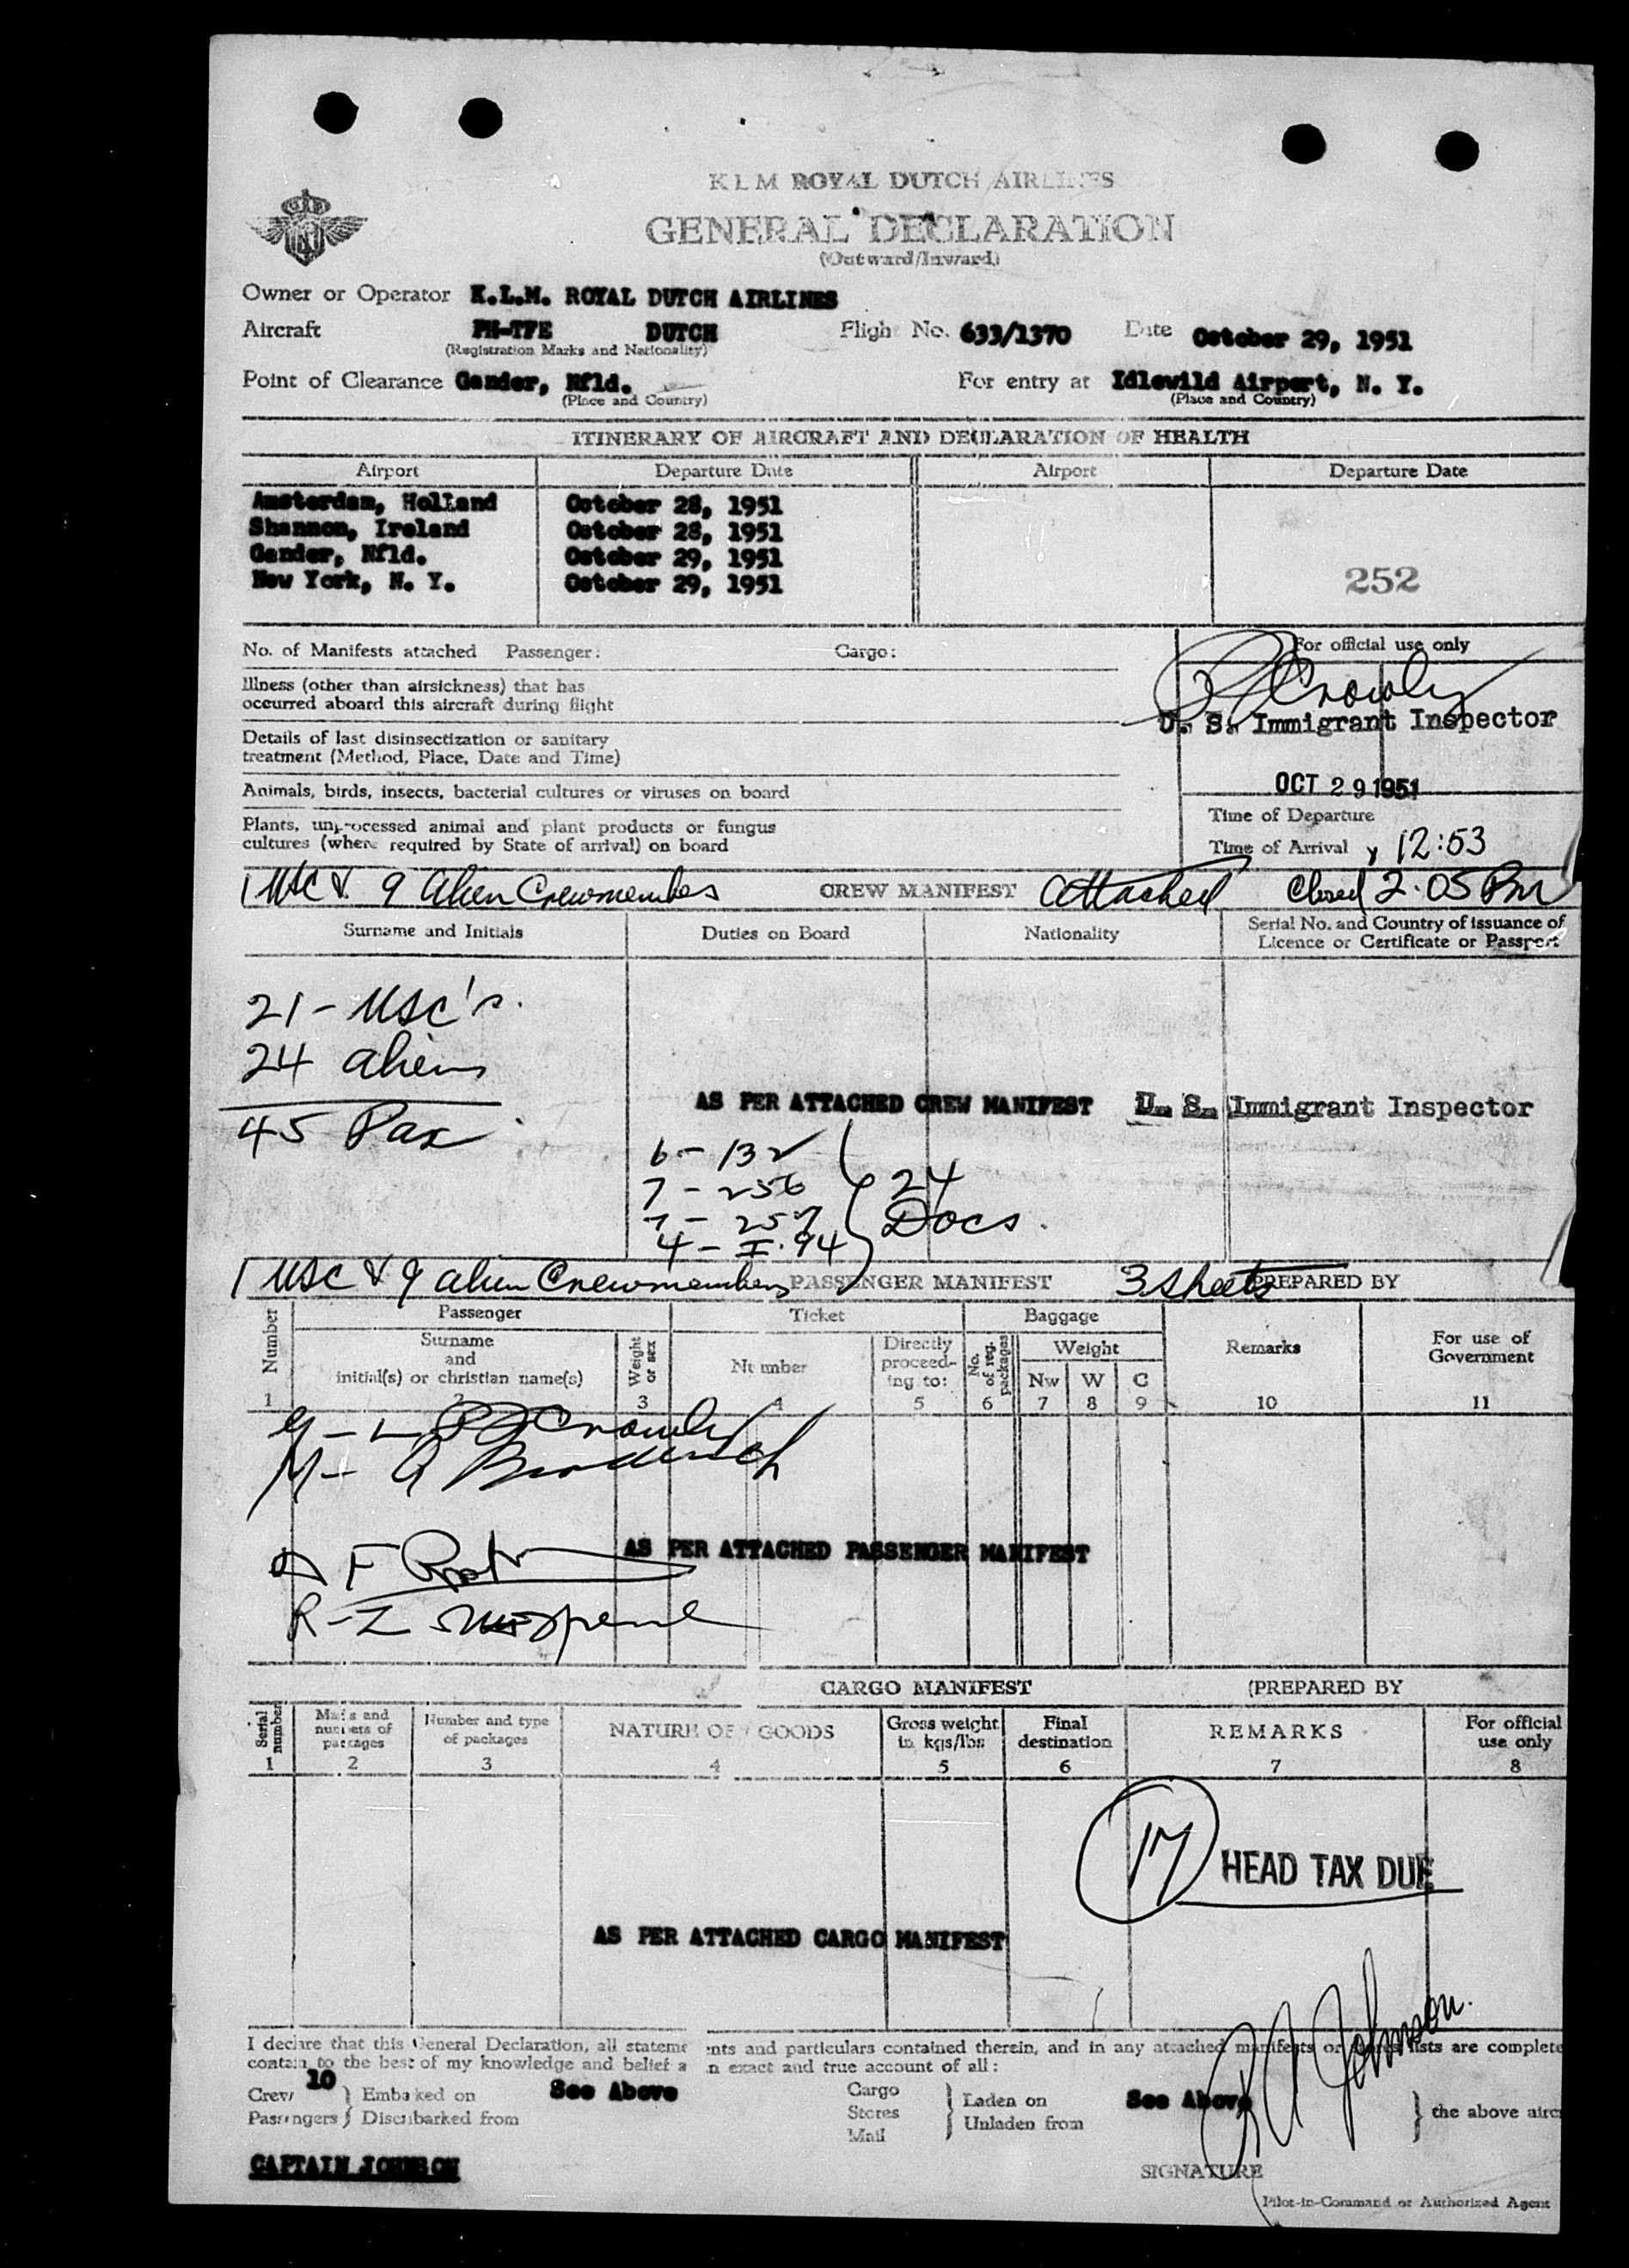 KLM ROYAL DUTCH AIRLINES
GENERAL DECLARATION
(Outward/Inward)
Owner or Operator K.L.M. ROYAL DUTCH AIRLINES
Aircraft PH-TFE DUTCH Flight No. 633/1370 Date October 29, 1951
(Registration Marks and Nationality)
Point of Clearance Gander, Nfld. For entry at Idlewild Airport, N. Y.
(Place and Country) (Place and Country)
ITINERARY OF AIRCRAFT AND DECLARATION OF HEALTH
Airport Departure Date Airport Departure Date
Amsterdam, Holland October 28, 1951
Shannon, Ireland October 28, 1951
Gander, Nfld. October 29, 1951
New York, N. Y. October 29, 1951
252
No. of Manifests attached Passenger: Cargo: For official use only
Illness (other than airsickness) that has
occurred aboard this aircraft during flight
Crowley
U. S. Immigrant Inspector
Details of last disinsectization or sanitary
treatment (Method, Place, Date and Time)
Animals, birds, insects, bacterial cultures or viruses on board
OCT 29 1951
Plants, unprocessed animal and plant products or fungus
cultures (where required by State of arrival) on board
Time of Departure
Time of Arrival 12:53
1 USC & 9 Alien Crewmembers CREW MANIFEST attached Closed 2:05 Pm
Surname and Initials Duties on Board Nationality Serial No. and Country of issuance of
Licence or Certificate or Passport
21 - USC's.
24 aliens
45 Pax
AS PER ATTACHED CREW MANIFEST U. S. Immigrant Inspector
6 - 132
7 - 256
7 - 257
4 - I.94
24
Docs.
1 USC & 9 alien Crewmembers PASSENGER MANIFEST 3 sheets PREPARED BY
Number Passenger Ticket Baggage Remarks For use of
Government
Surname
and
initial(s) or christian name(s)
Weight
or sex
Number
Directly
proceed-
ing to:
No.
of reg.
packages
Weight
Nw W C
1 2 3 4 5 6 7 8 9 10 11
Crowley
AS PER ATTACHED PASSENGER MANIFEST
CARGO MANIFEST (PREPARED BY
Serial
number
Marks and
numbers of
packages
Number and type
of packages
NATURE OF GOODS
Gross weight
in kgs/lbs
Final
destination
REMARKS
For official
use only
1 2 3 4 5 6 7 8
17 HEAD TAX DUE
AS PER ATTACHED CARGO MANIFEST
R A Johnson.
I declare that this General Declaration, all stateme nts and particulars contained therein, and in any attached manifests or stores lists are complete
contain to the best of my knowledge and belief a n exact and true account of all:
Crew 10 Embarked on See Above Cargo Laden on See Above
Passengers Disembarked from Stores Unladen from the above airc
Mail
CAPTAIN JOHNSON
SIGNATURE
Pilot-in-Command or Authorized Agent